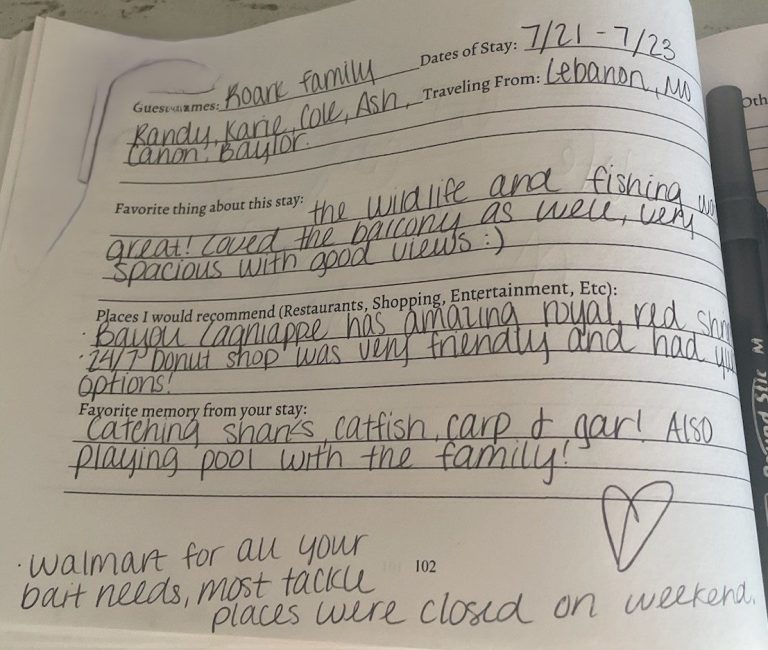 Dates of Stay: 7/21 - 7/23
Guest names: Roark family
Traveling From: Lebanon, MO
Randy, Karie, Cole, Ash,
Canon, Baylor.
Favorite thing about this stay: the wildlife and fishing
great! Loved the balcony as well, very
spacious with good views :)
Places I would recommend (Restaurants, Shopping, Entertainment, Etc):
· Bayou Lagniappe has amazing royal red
· 24/7 Donut shop was very friendly and had
options!
Favorite memory from your stay:
Catching sharks, catfish, carp & gar! Also
playing pool with the family!
102
· walmart for all your
bait needs, most tackle
places were closed on weekend.
Oth
M